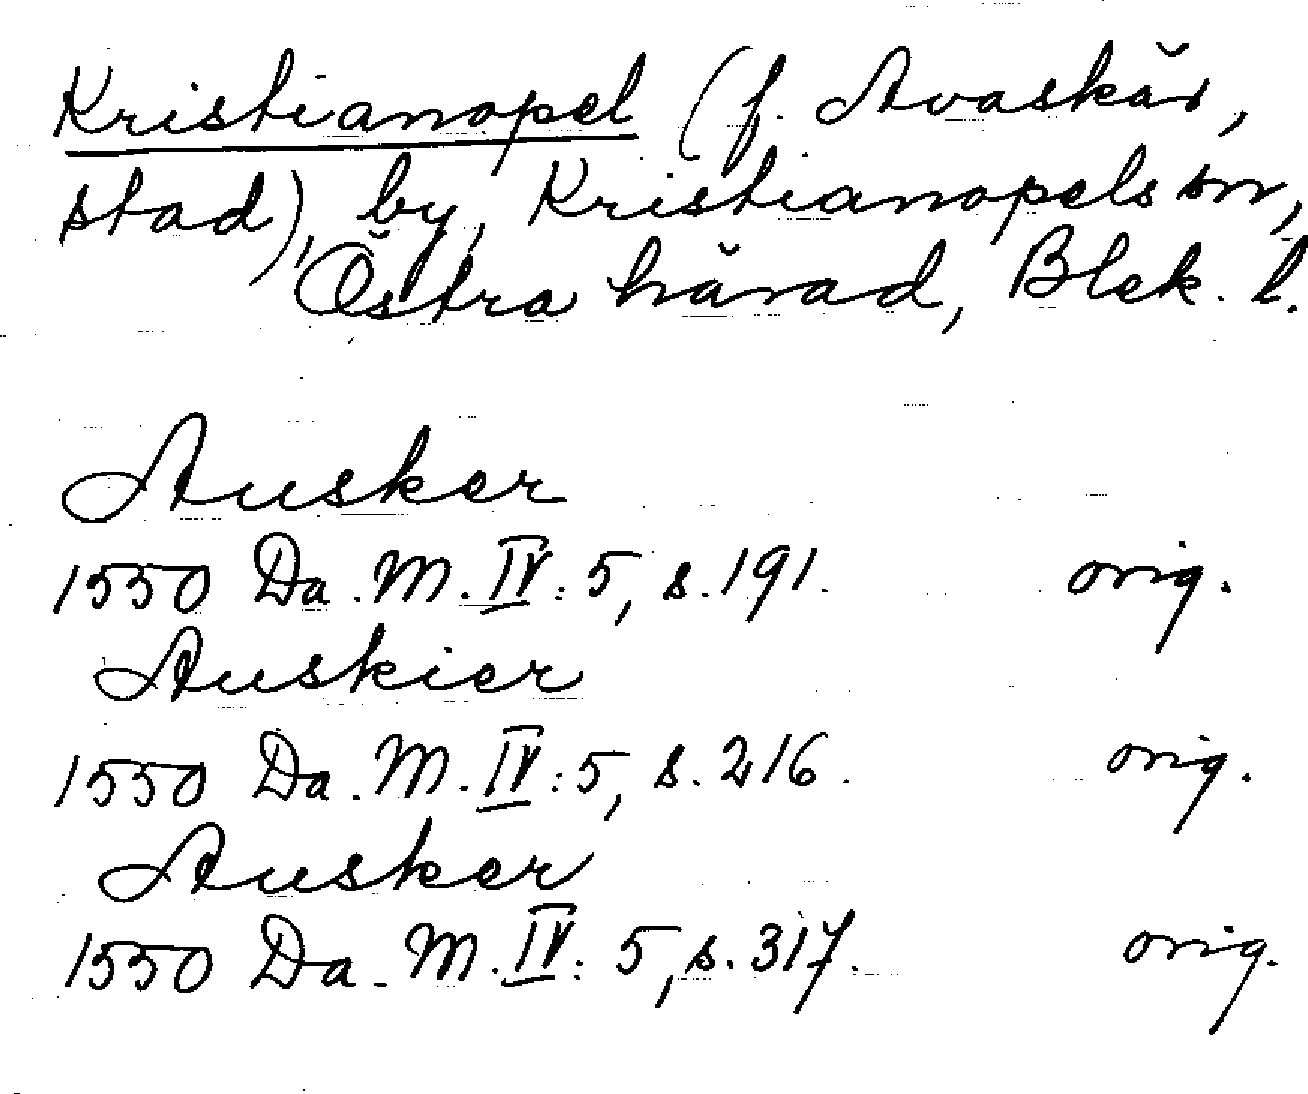 Kristianopel (f. Avaskär,
stad), by, Kristianopels sn,
Östra härad, Blek. l.
Ausker
1550 Da. M. IV: 5, s. 191. orig.
Auskier
1550 Da. M. IV: 5, s. 216. orig.
Ausker
1550 Da. M. IV: 5, s. 317. orig.